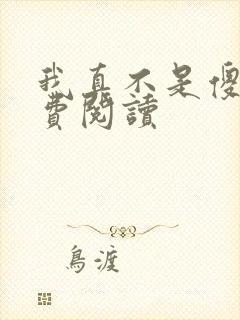 我真不是傻
費閱讀
鳥渡